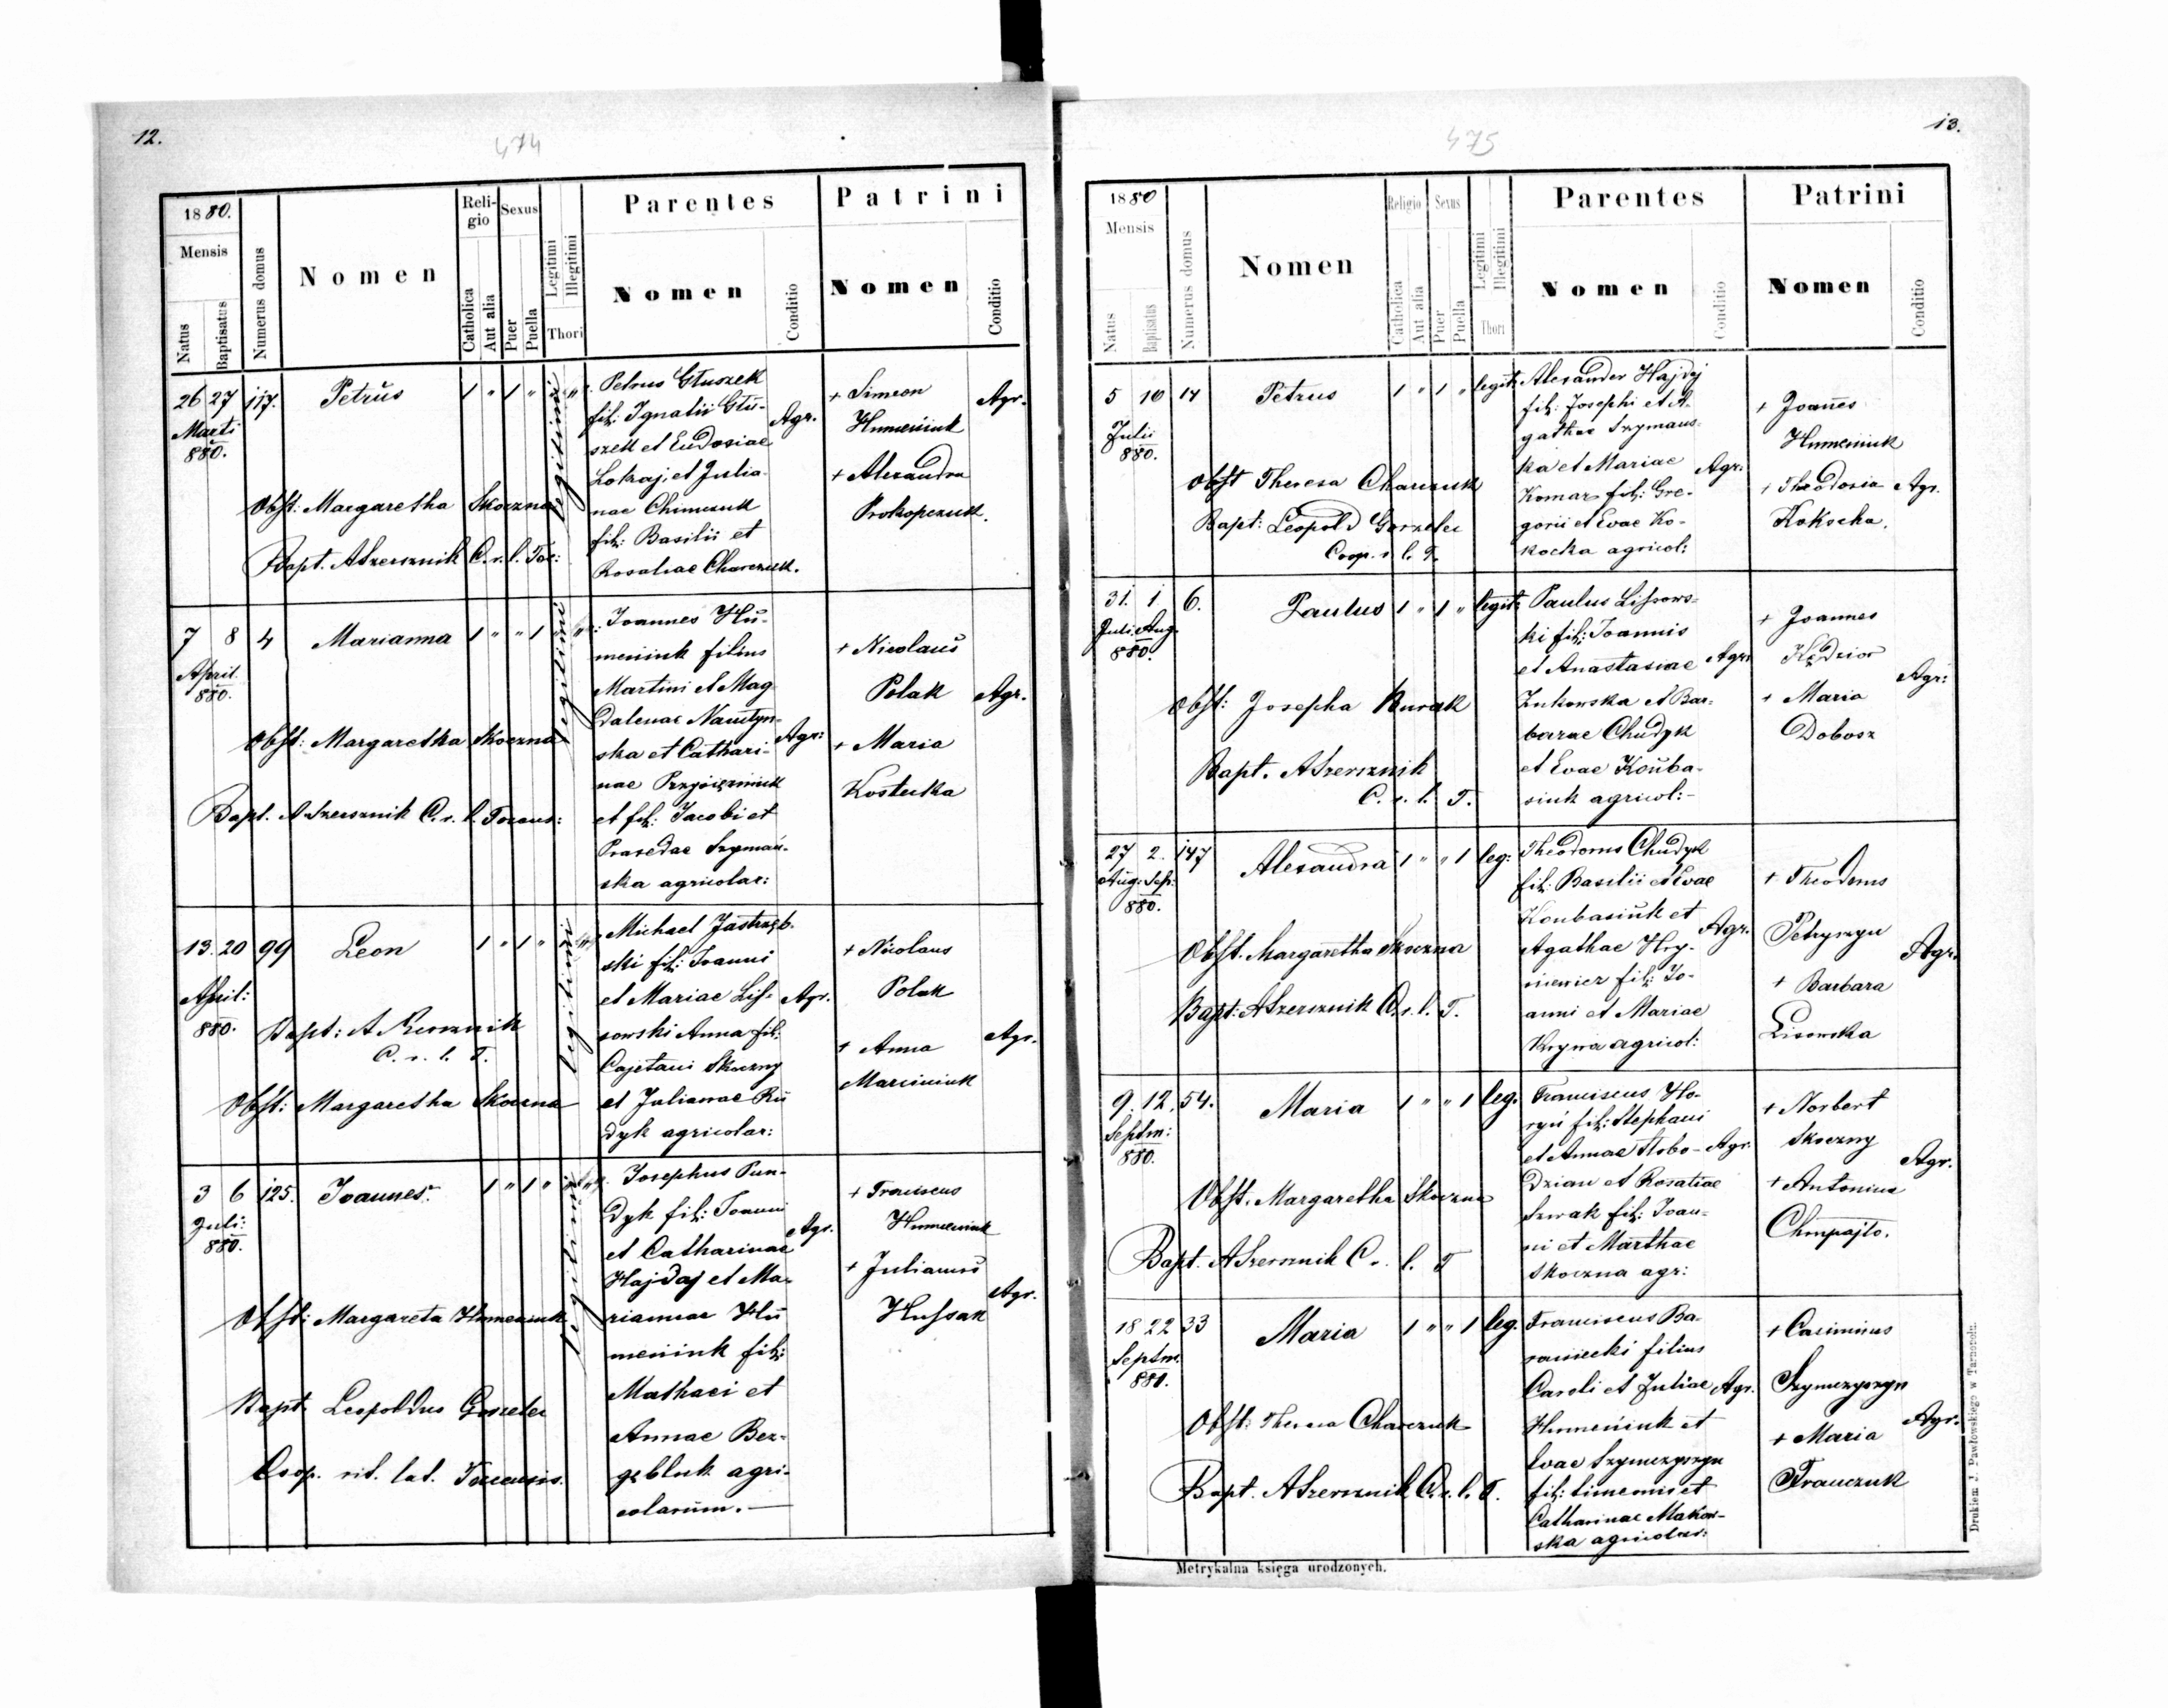 12.
474
1880.
Mensis
Natus
Baptisatus
Numerus domus
Nomen
Religio
Catholica
Aut alia
Sexus
Puer
Puella
Legitimi
Illegitimi
Thori
Parentes
Nomen
Conditio
Patrini
Nomen
Conditio
26 27 117. Petrus 1 " 1 " legitimi "
Marti
880.
Obst: Margaretha Skoczna
Bapt. A Szersznik C. r. l. Toc:
Petrus Głuszek
fil: Ignatii Głu-
szek et Eudosiae
Lokaj, et Julia-
nae Chimczuk
fil: Basilii et
Rosaliae Charczuk.
Agr.
+ Simeon
Humeniuk
+ Alexandra
Prokopczuk.
Agr.
7 8 4 Marianna 1 " " 1 legitimi "
April.
880.
Obst: Margaretha Skoczna
Bapt. A Szersznik C. r. l. Tocens:
Joannes Hu-
meniuk filius
Martini et Mag-
dalenae Nawtyn-
ska et Cathari-
nae
et fil: Jacobi et
Praxedae Szymań-
ska agricolar:
Agr:
+ Nicolaus
Polak
+ Maria
Kostecka
Agr.
13. 20 99 Leon 1 " 1 " legitimi "
April:
880.
Bapt: A Szersznik
C. r. l. T.
Obst: Margaretha Skoczna
Michael Jastrzęb-
ski fil: Joanni
et Mariae Lis-
sowski Anna fil:
Cajetani Skoczny
et Julianae Ru
dyk agricolar:
Agr.
+ Nicolaus
Polak
+ Anna
Marciniuk
Agr.
3 6 125. Joannes. 1 " 1 " legitimi "
Juli:
880.
Obst: Margareta Humeniuk
Bapt. Leopoldus Gorzelec
Coop. rit. lat. Tocensis.
Josephus Pun-
dyk fil: Joanni
et Catharinae
Hajdaj et Ma-
riannae Hu
meniuk fil:
Mathaei et
Annae Bez-
gębluk agri-
colarum. —
Agr.
+ Franciscus
Humeniuk
+ Julianus
Hussak
Agr.
13.
475
1880
Mensis
Natus
Baptisatus
Numerus domus
Nomen
Religio
Catholica
Aut alia
Sexus
Puer
Puella
Legitimi
Illegitimi
Thori
Parentes
Nomen
Conditio
Patrini
Nomen
Conditio
5 10 14 Petrus 1 " 1 " legit:
Julii
880.
Obst Theresa Charczuk
Bapt: Leopold Gorzelec
Coop. r. l. T.
Alexander Hajdej
fil: Josephi et A-
gathae Szymans-
ka et Mariae
Komar fil: Gre-
gorii et Evae Ko-
kocka agricol:
Agr:
+ Joannes
Humeniuk
+ Theodosia
Kokocha.
Agr.
31. 1 6. Paulus 1 " 1 " legit:
Juli Aug.
880.
Obst: Josepha Kurak
Bapt. A Szersznik
C. r. l. T.
Paulus Lissows-
ki fil: Joannis
et Anastasiae
Żukowska et Bar-
barae Chudyk
et Evae Kouba-
siuk agricol:-
Agr.
+ Joannes
Kędzior
+ Maria
Dobosz
Agr:
27 2. 147 Alexandra 1 " " 1 leg:
Aug: Sep:
880.
Obst. Margaretha Skoczna
Bapt: A Szersznik C. r. l. T.
Theodorus Chudyk
fil: Basilii et Evae
Koubasiuk et
Agathae Hry-
niewicz fil: Jo-
anni et Mariae
Krywa agricol:
Agr.
+ Theodorus
Petryszyn
+ Barbara
Lisowska
Agr.
9. 12. 54. Maria 1 " " 1 leg.
Septm:
880.
Obst. Margaretha Skoczna
Bapt. A Szersznik C r. l. T
Franciscus Ho-
ryń fil: Stephani
et Annae Słobo-
dzian et Rosaliae
Szwak fil: Joan-
ni et Marthae
Skoczna agr:
Agr.
+ Norbert
Skoczny
+ Antonina
Chmpajło.
Agr.
18 22 33 Maria 1 " " 1 leg.
Septm.
880.
Obst: Theresa Charczuk
Bapt. A Szersznik C. r. l. T.
Franciscus Ba-
raniecki filius
Caroli et Juliae
Humeniuk et
Evae Szymczyszyn
fil: Simeonis et
Catharinae Makow-
ska agricolar:
Agr.
+ Casimirus
Szymczyszyn
+ Maria
Franczuk
Agr.
Metrykalna księga urodzonych.
Drukiem J. Pawłowskiego w Tarnopolu.